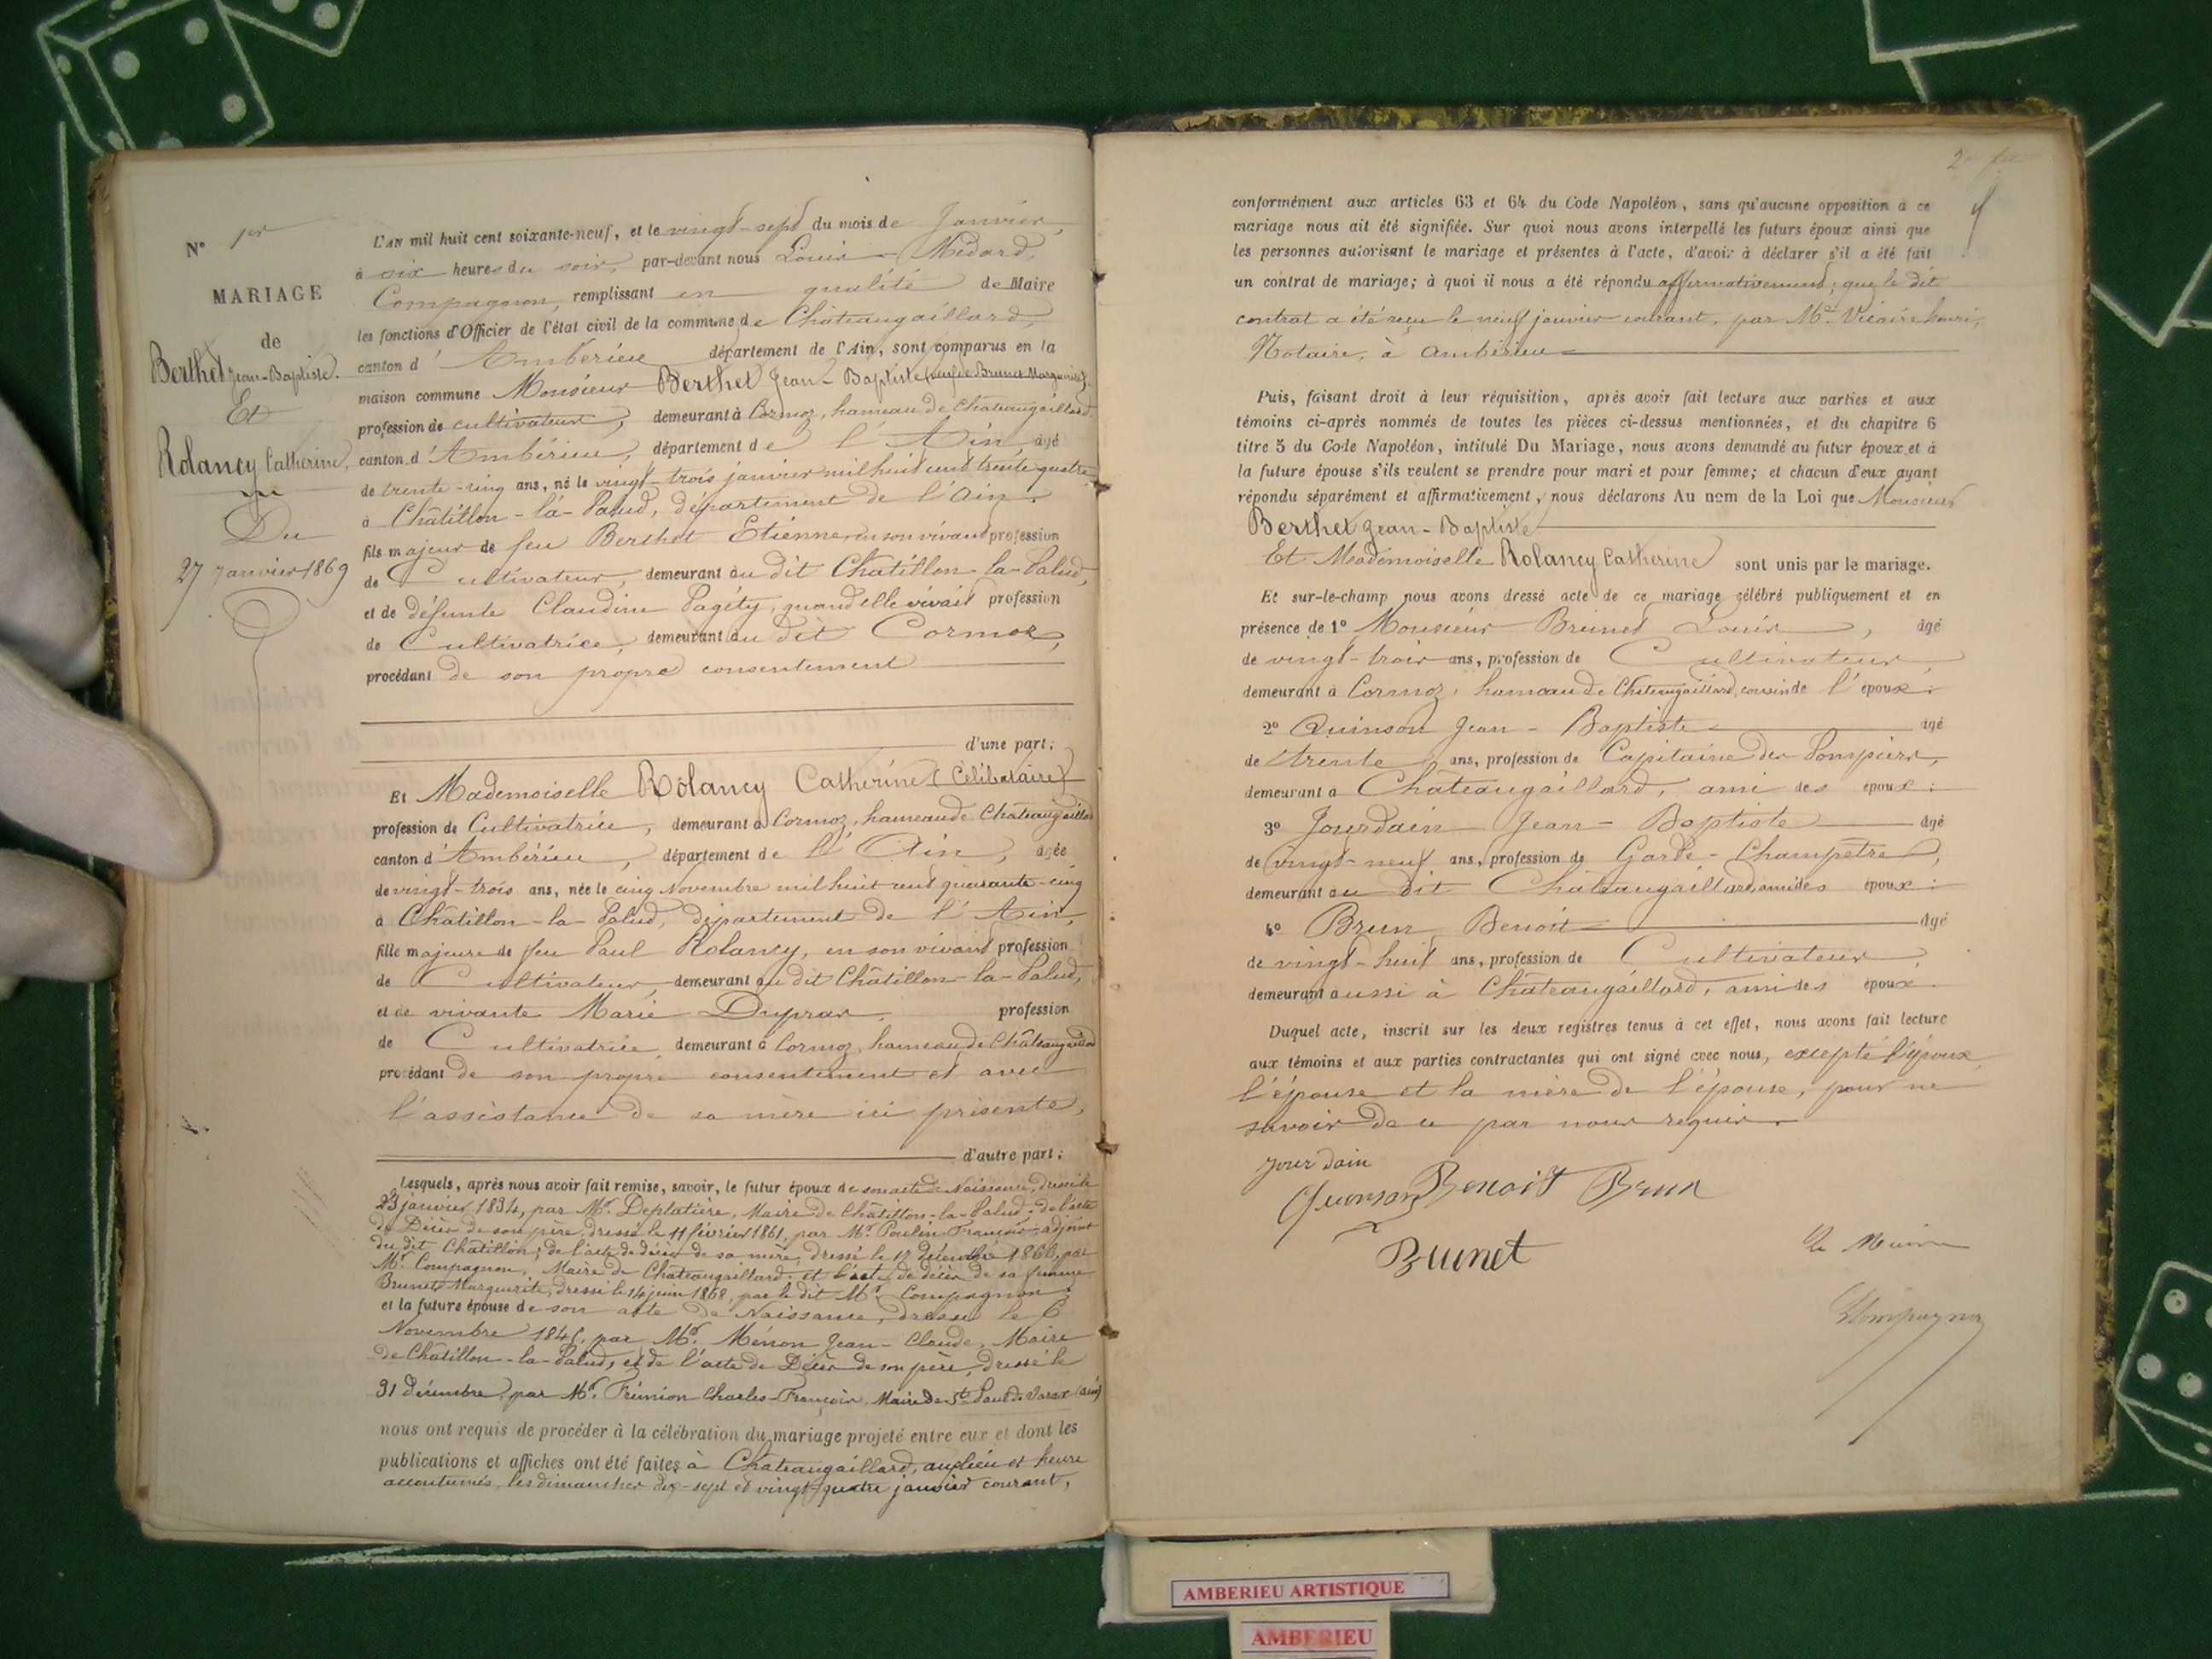 N° 1er
MARIAGE
de
Berthet Jean-Baptiste.
Et
Rolancy Catherine,
Du
27 Janvier 1869
L'AN mil huit cent soixante-neuf, et le vingt-sept du mois de Janvier,
à six heures du soir, par-devant nous Louis-Médard,
Compagnon, remplissant en qualité de Maire
les fonctions d'Officier de l'état civil de la commune de Châteaugaillard,
canton d'Ambérieu département de l'Ain, sont comparus en la
maison commune Monsieur Berthet Jean-Baptiste (veuf de Brunet Marguerite)
profession de cultivateur, demeurant à Cormoz, hameau de Châteaugaillard
canton d'Ambérieu, département de l'Ain, âgé
de trente-cinq ans, né le vingt-trois janvier mil huit cent trente quatre
à Châtillon-la-Palud, département de l'Ain.
fils majeur de feu Berthet Etienne, en son vivant profession
de Cultivateur, demeurant au dit Châtillon-la-Palud,
et de défunte Claudine Pagéty, quand elle vivait profession
de Cultivatrice, demeurant au dit Cormoz,
procédant de son propre consentement
d'une part;
Et Mademoiselle Rolancy Catherine (Célibataire)
profession de Cultivatrice, demeurant à Cormoz, hameau de Châteaugaillard
canton d'Ambérieu, département de l'Ain, âgée
de vingt-trois ans, née le cinq Novembre mil huit cent quarante-cinq
à Châtillon-la-Palud, département de l'Ain,
fille majeure de feu Paul Rolancy, en son vivant profession
de Cultivateur, demeurant au dit Châtillon-la-Palud,
et de vivante Marie Dupras, profession
de Cultivatrice, demeurant à Cormoz, hameau de Châteaugaillard
procédant de son propre consentement et avec
l'assistance de sa mère ici présente,
d'autre part;
Lesquels, après nous avoir fait remise, savoir, le futur époux de son acte de Naissance, dressé le
23 janvier 1834, par Mr. Deplatière, Maire de Châtillon-la-Palud; de l'acte
de Décès de son père, dressé le 11 février 1861, par Mr. Poulin François, adjoint
du dit Châtillon; de l'acte de décès de sa mère, dressé le 12 décembre 1866, par
Mr. Compagnon, Maire de Châteaugaillard; et l'acte de décès de sa femme
Brunet Marguerite, dressé le 14 juin 1868, par le dit Mr. Compagnon;
et la future épouse de son acte de Naissance, dressé le 6
Novembre 1845, par Mr. Ménon Jean-Claude, Maire
de Châtillon-la-Palud, et de l'acte de Décès de son père, dressé le
31 décembre, par Mr. Charles-François, Maire de St. Paul de Varax (Ain)
nous ont requis de procéder à la célébration du mariage projeté entre eux et dont les
publications et affiches ont été faites à Châteaugaillard, aux lieu et heure
accoutumés, les dimanches dix-sept et vingt-quatre janvier courant,
conformément aux articles 63 et 64 du Code Napoléon, sans qu'aucune opposition à ce
mariage nous ait été signifiée. Sur quoi nous avons interpellé les futurs époux ainsi que
les personnes autorisant le mariage et présentes à l'acte, d'avoir à déclarer s'il a été fait
un contrat de mariage; à quoi il nous a été répondu affirmativement; que le dit
contrat a été reçu le neuf janvier courant, par Me. Vicaire henri,
Notaire, à Ambérieu
Puis, faisant droit à leur réquisition, après avoir fait lecture aux parties et aux
témoins ci-après nommés de toutes les pièces ci-dessus mentionnées, et du chapitre 6
titre 5 du Code Napoléon, intitulé Du Mariage, nous avons demandé au futur époux et à
la future épouse s'ils veulent se prendre pour mari et pour femme; et chacun d'eux ayant
répondu séparément et affirmativement, nous déclarons Au nom de la Loi que Monsieur
Berthet Jean-Baptiste
Et Mademoiselle Rolancy Catherine sont unis par le mariage.
Et sur-le-champ nous avons dressé acte de ce mariage célébré publiquement et en
présence de 1° Monsieur Brunet Louis, âgé
de vingt-trois ans, profession de Cultivateur,
demeurant à Cormoz, hameau de Châteaugaillard, cousin de l'époux;
2° Quinson Jean-Baptiste âgé
de trente ans, profession de Capitaine des Pompiers,
demeurant à Châteaugaillard, ami des époux;
3° Jourdain Jean-Baptiste âgé
de vingt-neuf ans, profession de Garde-Champêtre,
demeurant au dit Châteaugaillard, ami des époux;
4° Brun Benoit âgé
de vingt-huit ans, profession de Cultivateur,
demeurant aussi à Châteaugaillard, ami des époux.
Duquel acte, inscrit sur les deux registres tenus à cet effet, nous avons fait lecture
aux témoins et aux parties contractantes qui ont signé avec nous, excepté l'époux,
l'épouse et la mère de l'épouse, pour ne
savoir de ce par nous requis.
Jourdain
Quinson Benoit Brun
Brunet
Le Maire
Compagnon
AMBERIEU ARTISTIQUE
AMBERIEU